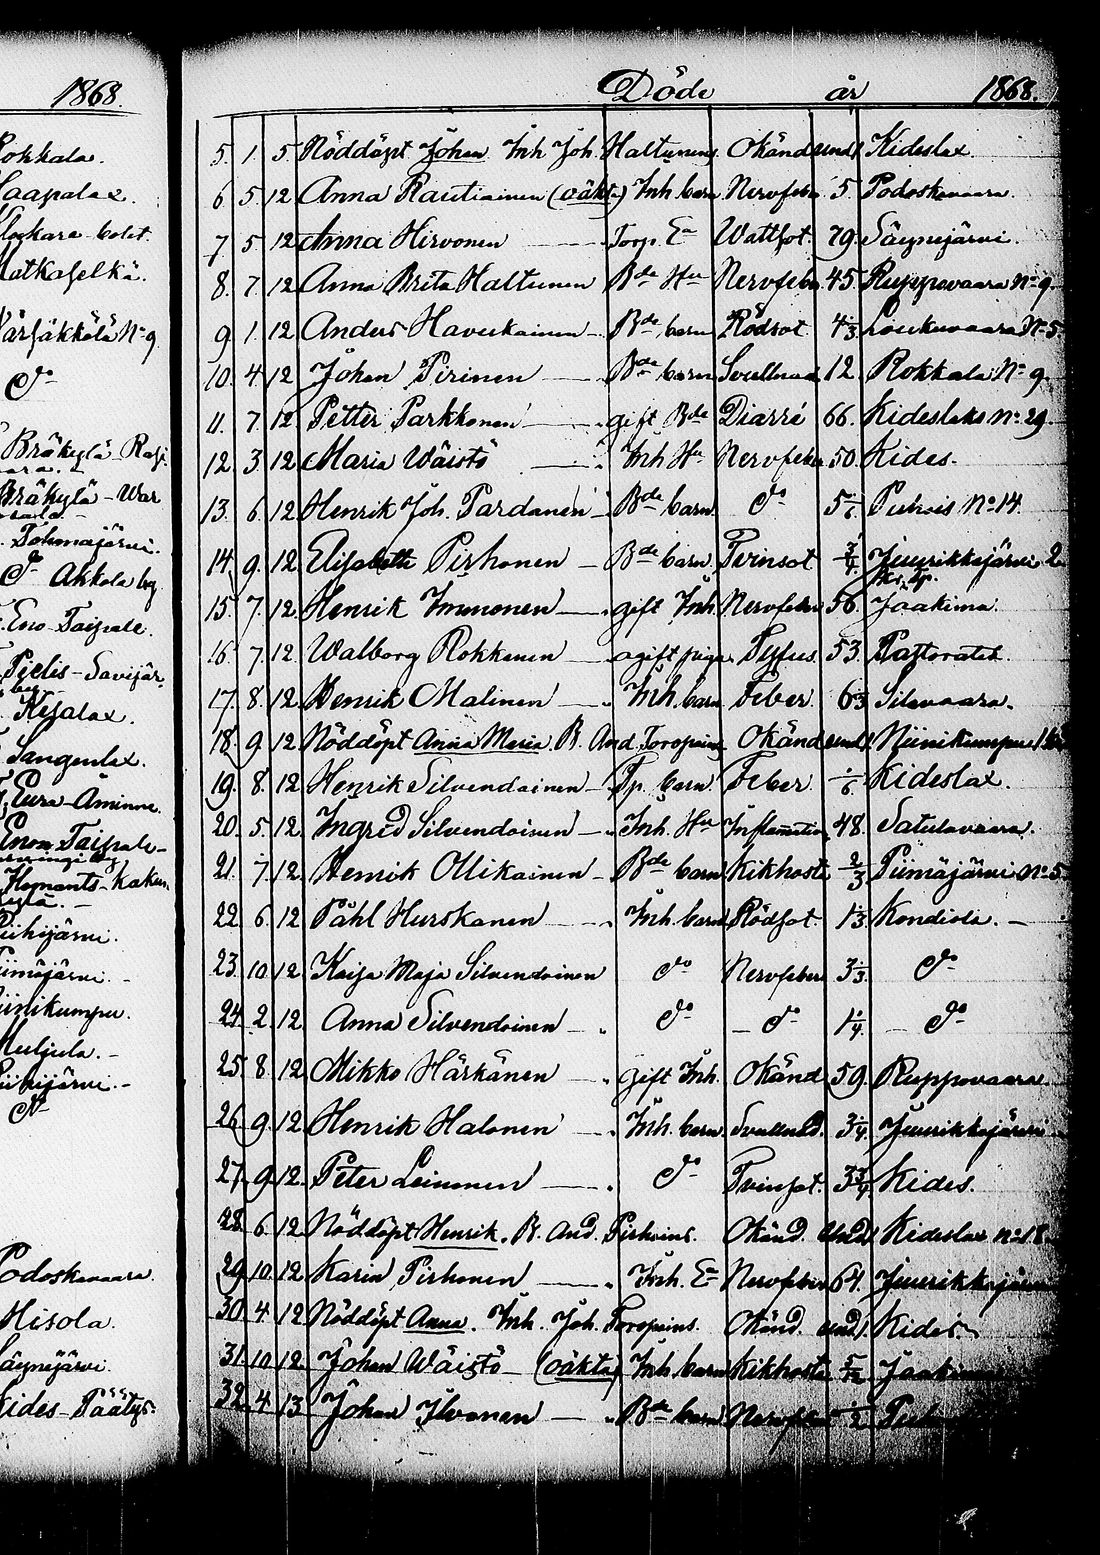 1868.
Rokkala.
Haapalax.
Klockare bolst.
Matkaselkä.
Värsäkkölä No 9
do
Bräkylä
Bräkylä - War
Tohmajärvi.
do Akkala by
Eno-Taipale.
Pielis-Savijär
Kesälax.
Sangenlax.
Eura-Åminne.
Enon Taipale-
Puhujärvi.
Piimäjärvi. -
Niinikumpu.
Muljula. -
Puhujärvi. -
do
Podoskavaara.
Hisola.
Säynejärvi.
Kides-Päätyс.
Döde år 1868.
5. 1. 5 Nöddöpt Johan Inh Joh. Haltunens Okänd und 1 Kideslax.
6 5 12 Anna Rautiainen (oäkta) Inh. barn Nervfeber 5 Podoskavaara.
7 5 12 Anna Hirvonen Torp. Ea Wattsot 79. Säynejärvi.
8. 7. 12 Anna Brita Haltunen Bde Hu Nervfeber 45. Ruppovaara No 9.
9 1. 12 Anders Havukainen Bde barn Rödsot 4 1/3 Loukuvaara No 5
10. 4 12 Johan Pirinen Bde barn Svullnad 12. Rokkala No 9.
11. 7. 12 Petter Parkkonen gift Bde Diarré 66. Kideslaks No 29.
12. 3. 12 Maria Wäistö Inh Hu Nervfeber 50. Kides.
13. 6. 12 Henrik Joh. Pardanen Bde barn do 5 1/6 Puhois No 14.
14. 9. 12 Elisabeth Pirhonen Bde barn Tvinsot 3/4. Juurikkajärvi 2
15. 7. 12 Henrik Immonen gift Inh. Nervfeber 56. Jaakima.
16. 7. 12. Walborg Rokkanen ogift piga Tyfus 53. Pastoratet.
17. 8. 12. Henrik Malinen Inh. barn Feber. 6 1/3 Silovaara.
18. 9. 12 Nöddöpt Anna Maria B. And Toropains Okänd und 1. Niinikumpu
19. 8. 12 Henrik Silvendoinen Tp. barn Feber 1/6 Kideslax.
20. 5. 12. Ingrid Silvendoinen Inh. Hu Inflammation 48. Satulavaara.
21. 7. 12. Henrik Ollikainen Bde barn Kikhosta 2/3 Piimäjärvi No 5
22. 6. 12 Påhl Hurskanen Inh. barn Rödsot. 1 1/3 Kondiola. -
23. 10. 12. Kaisa Maja Silvendoinen do Nervfeber 3 1/3. do
24. 2. 12. Anna Silvendoinen do do 1 1/4. do
25. 8. 12. Mikko Härkänen gift Inh. Okänd 59. Ruppovaara
26. 9. 12 Henrik Halonen Inh. barn Svullnad. 3 1/4. Juurikkajärvi
27. 9. 12. Peter Leinonen do Tvinsot. 3 3/4 Kides.
28. 6. 12. Nöddöpt Henrik. B. And. Pirhoins. Okänd. und 1 Kideslax No 18
29. 10. 12 Karin Pirhonen Inh. Ea Nervfeber 64. Juurikkajärvi
30. 4. 12 Nöddöpt Anna. Inh. Joh. Toropains. Okänd. und 1. Kides
31. 10. 12 Johan Wäistö (oäkta) Inh. barn Kikhosta 5/12 Jaakima
32. 4. 13 Johan Ilvonen Bde barn Nervfeber